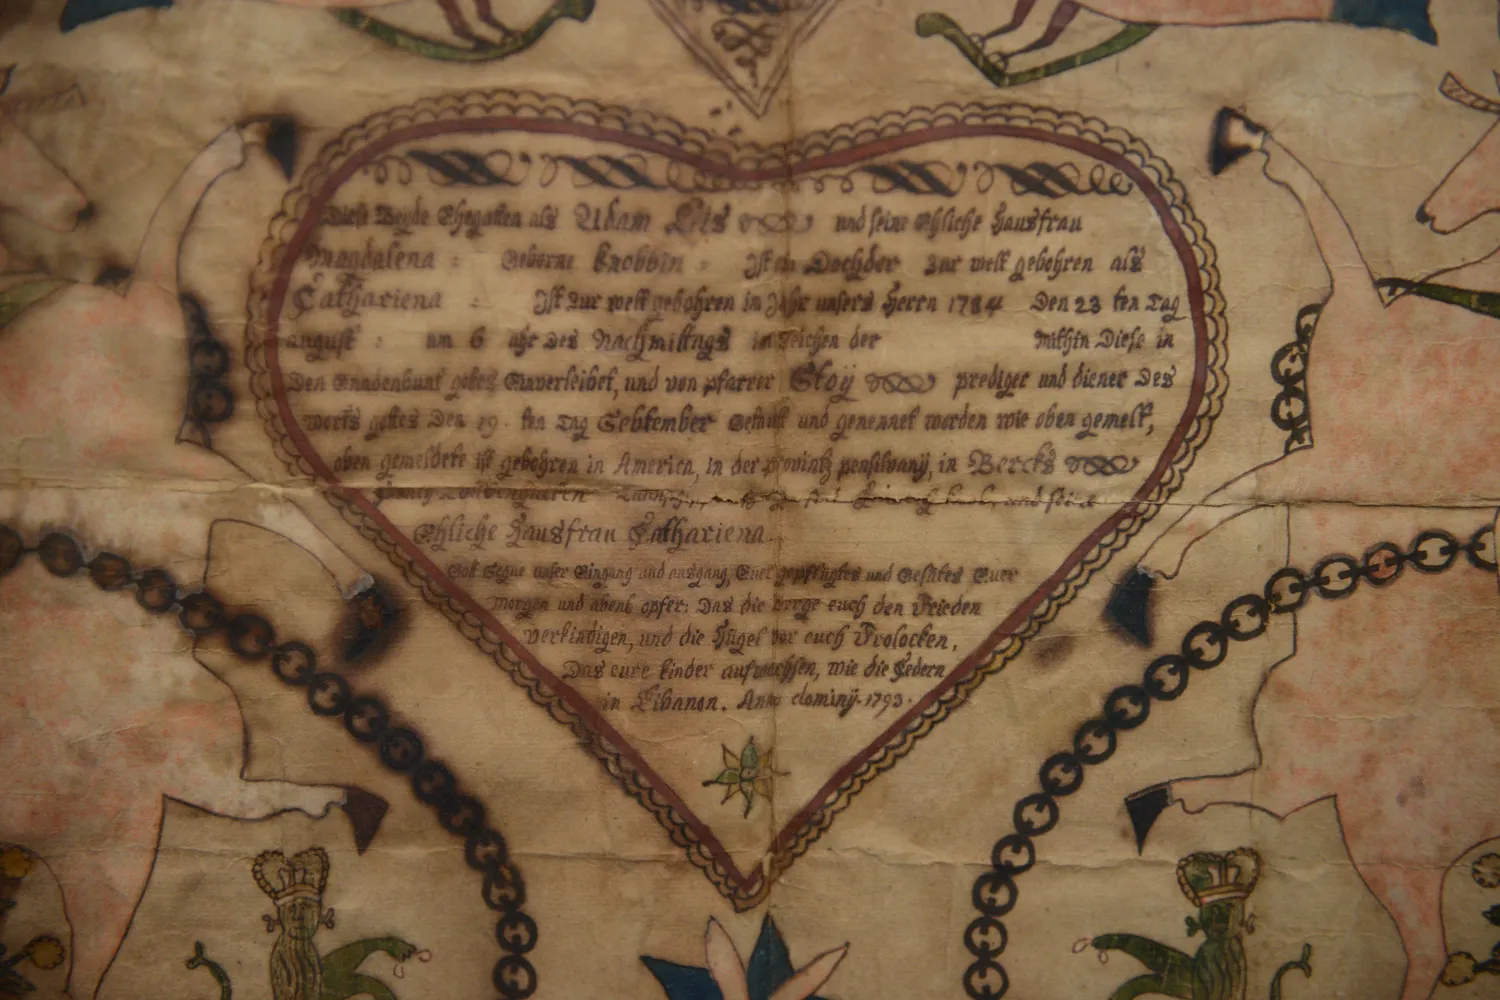 Diese Beyde Ehegatten als Adam Leis und seine Ehliche Hausfrau
Magdalena = Geborne Knobbin = Ist ein Dochder zur welt gebohren als
Cathariena = Ist zur welt gebohren im Jahr unsers Herrn 1784 Den 23 ten Tag
august : um 6 uhr Des Nachmittags im Zeichen der Mithin Diese in
Den Gnadenbunt gottes Einverleibet, und von pfarrer Stoÿ prediger und diener Des
worts gottes Den 19. ten Tag Sebtember Getauft und genennet worden wie oben gemelt,
oben gemeldete ist gebohren in America, in der provintz pensilvanÿ, in Bercks
und seine
Ehliche Hausfrau Cathariena.
Gott Segne unser Eingang und ausgang, Euer gepflügtes und Gesätes Euer
morgen und abent opfer: Das die berge euch den Frieden
verkindigen, und die Hügel vor euch Frolocken,
Das eure kinder aufwachsen, wie die Cedern
in Libanon. Anno dominÿ. 1793.